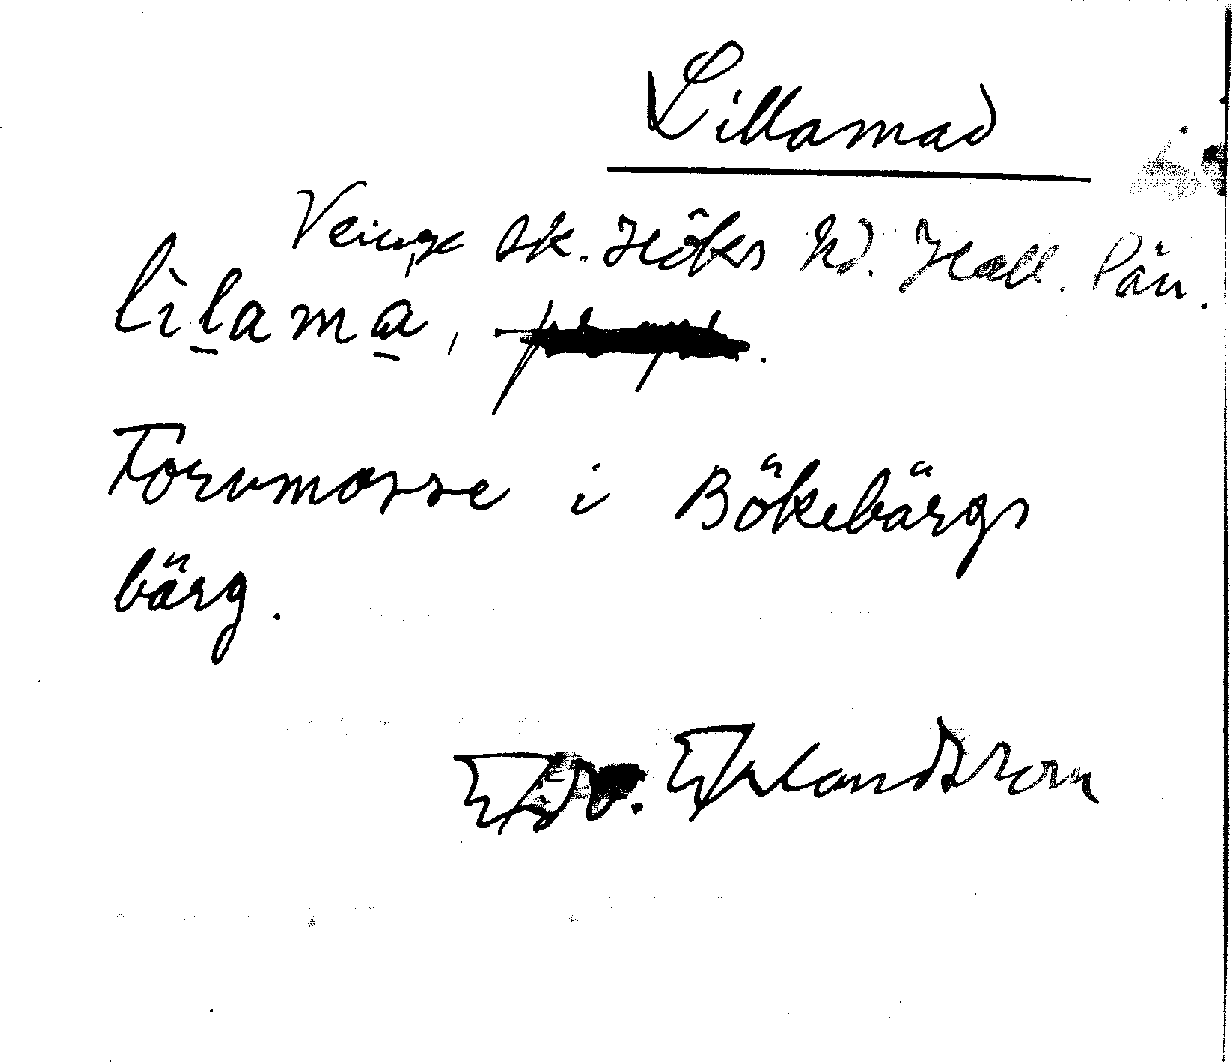 Lillamad
Veinge sk. Höks hd. Hall. län.
lilama, .
Torvmosse i Bökebärgs
bärg.